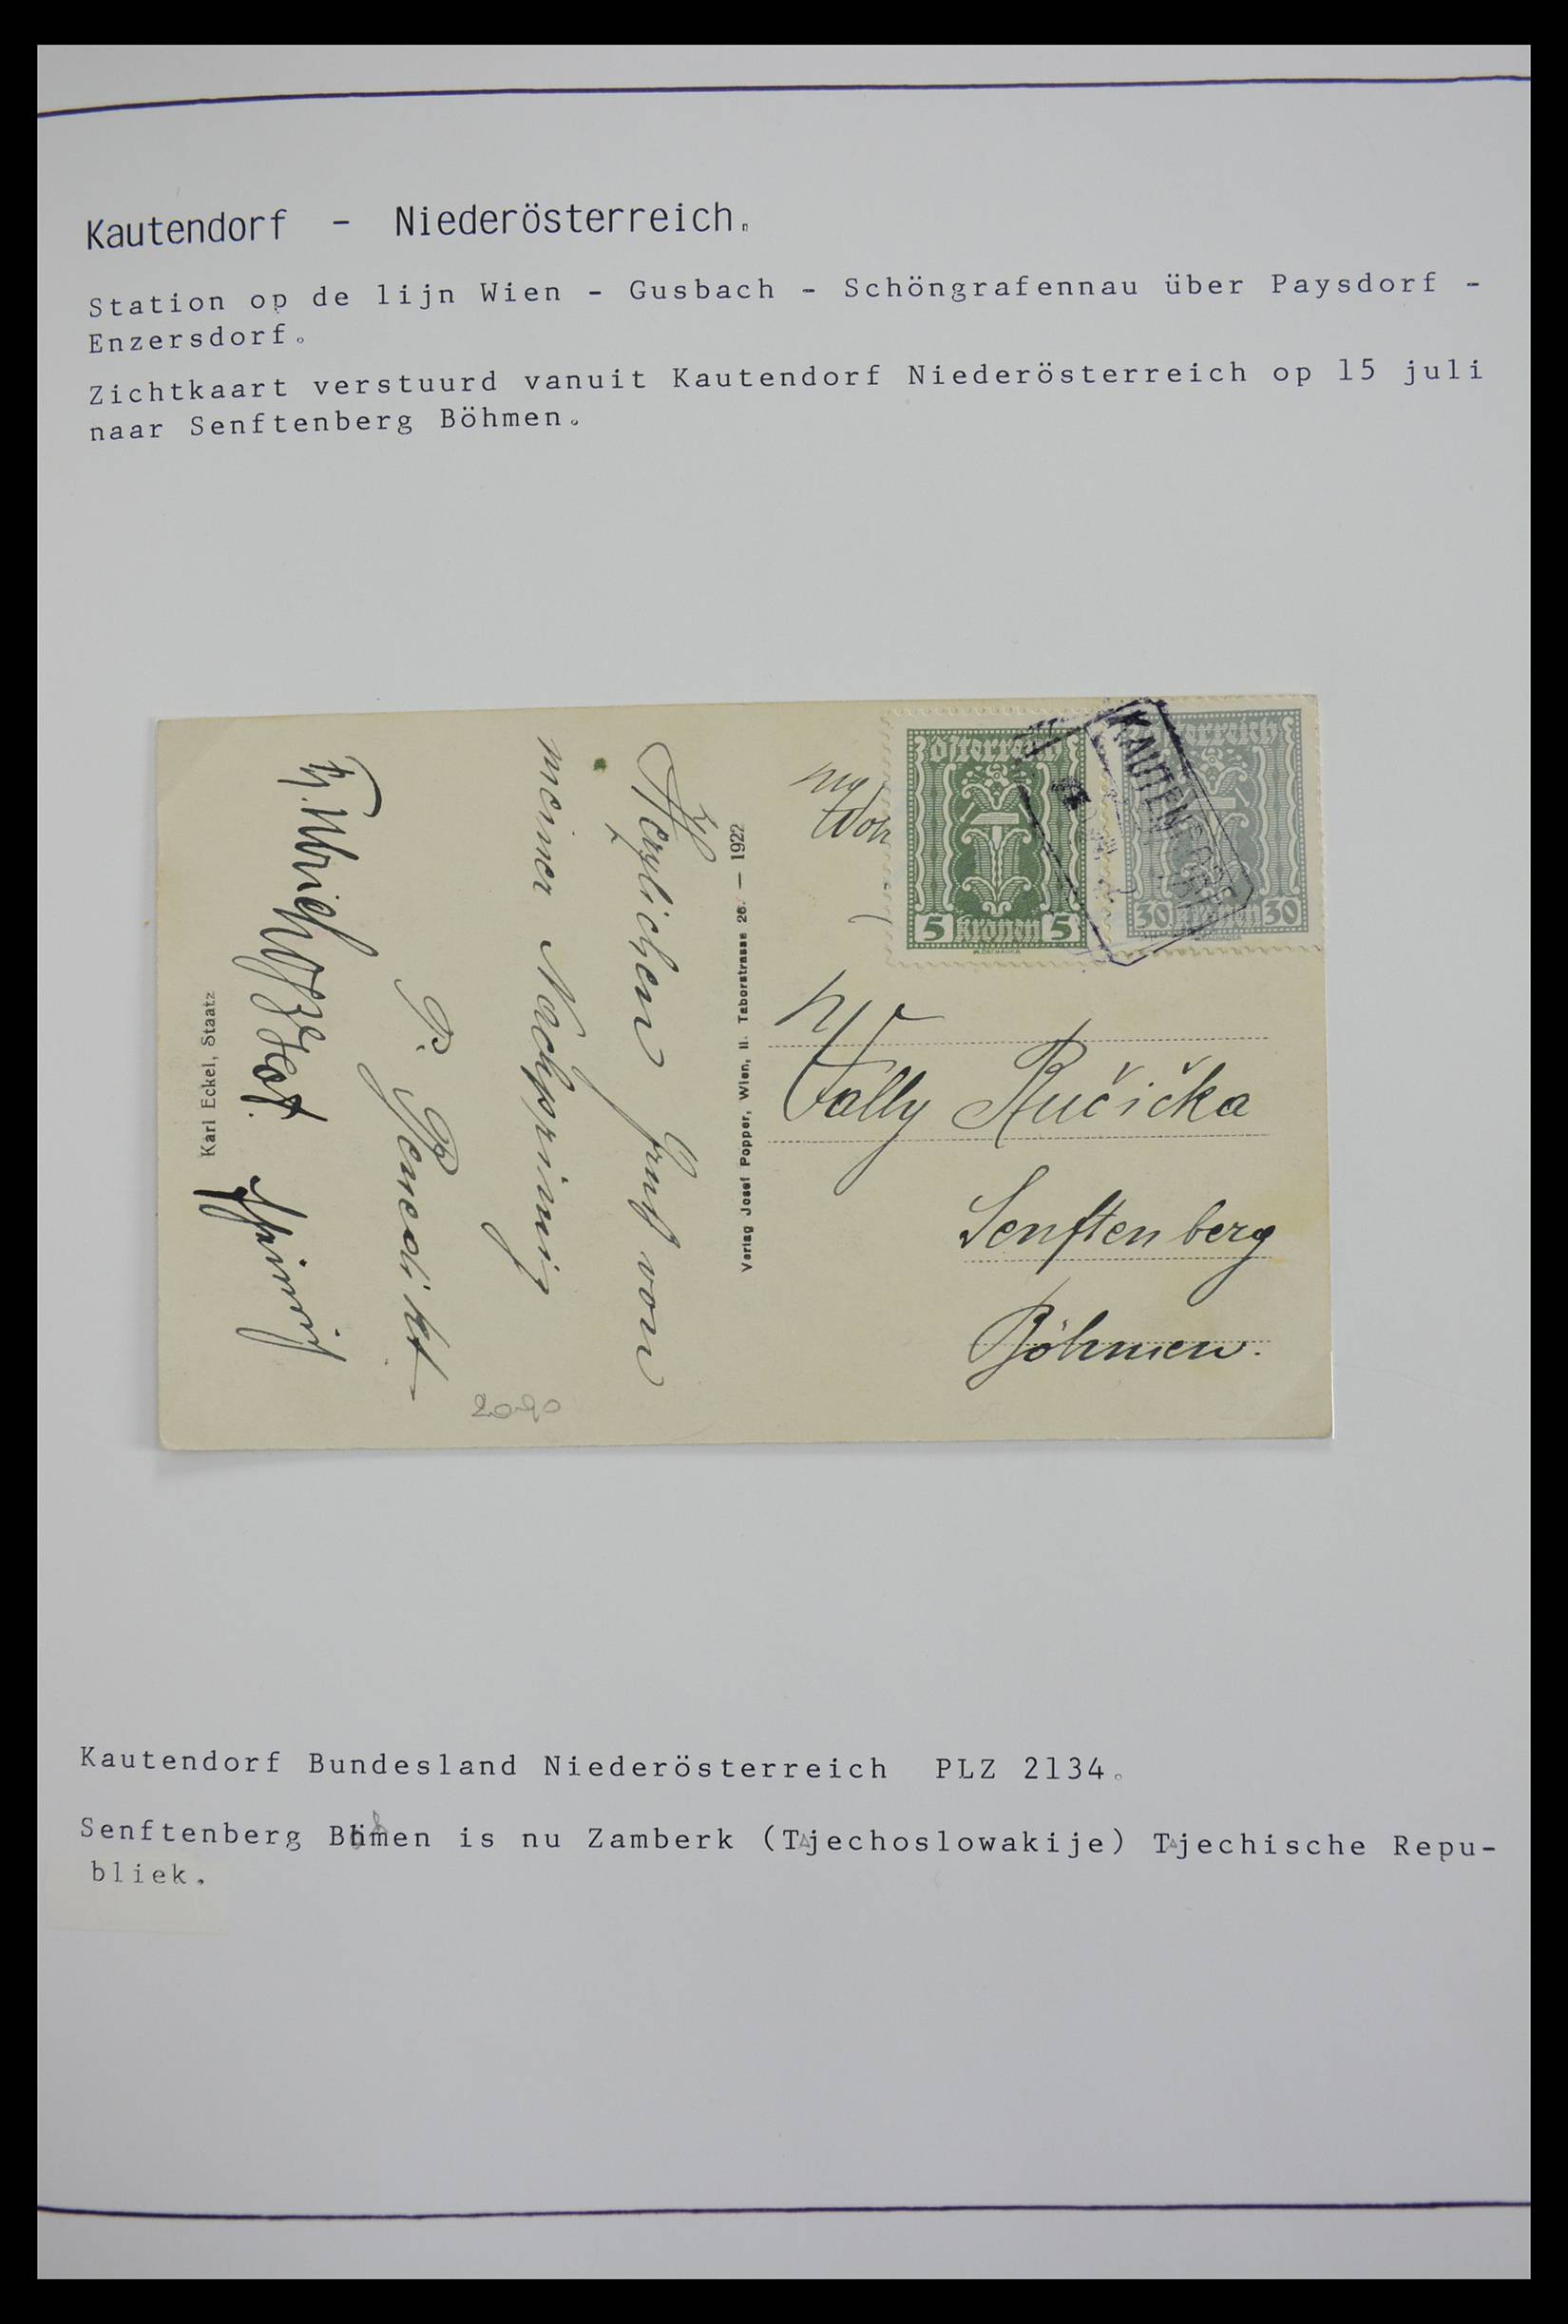 Kautendorf - Niederösterreich.
Station op de lijn Wien - Gusbach - Schöngrafennau über Paysdorf -
Enzersdorf.
Zichtkaart verstuurd vanuit Kautendorf Niederösterreich op 15 juli
naar Senftenberg Böhmen.
österreich
5 Kronen 5
österreich
30 Kronen 30
KAUTENDORF
Vally Ručička
Senftenberg
Böhmen.
Verlag Josef Popper, Wien, II. Taborstrasse 26. — 1922
Herzlichen Gruß von
meiner
P. Benedikt
Karl Eckel, Staatz
Kautendorf Bundesland Niederösterreich PLZ 2134.
Senftenberg Böhmen is nu Zamberk (Tjechoslowakije) Tjechische Repu-
bliek.